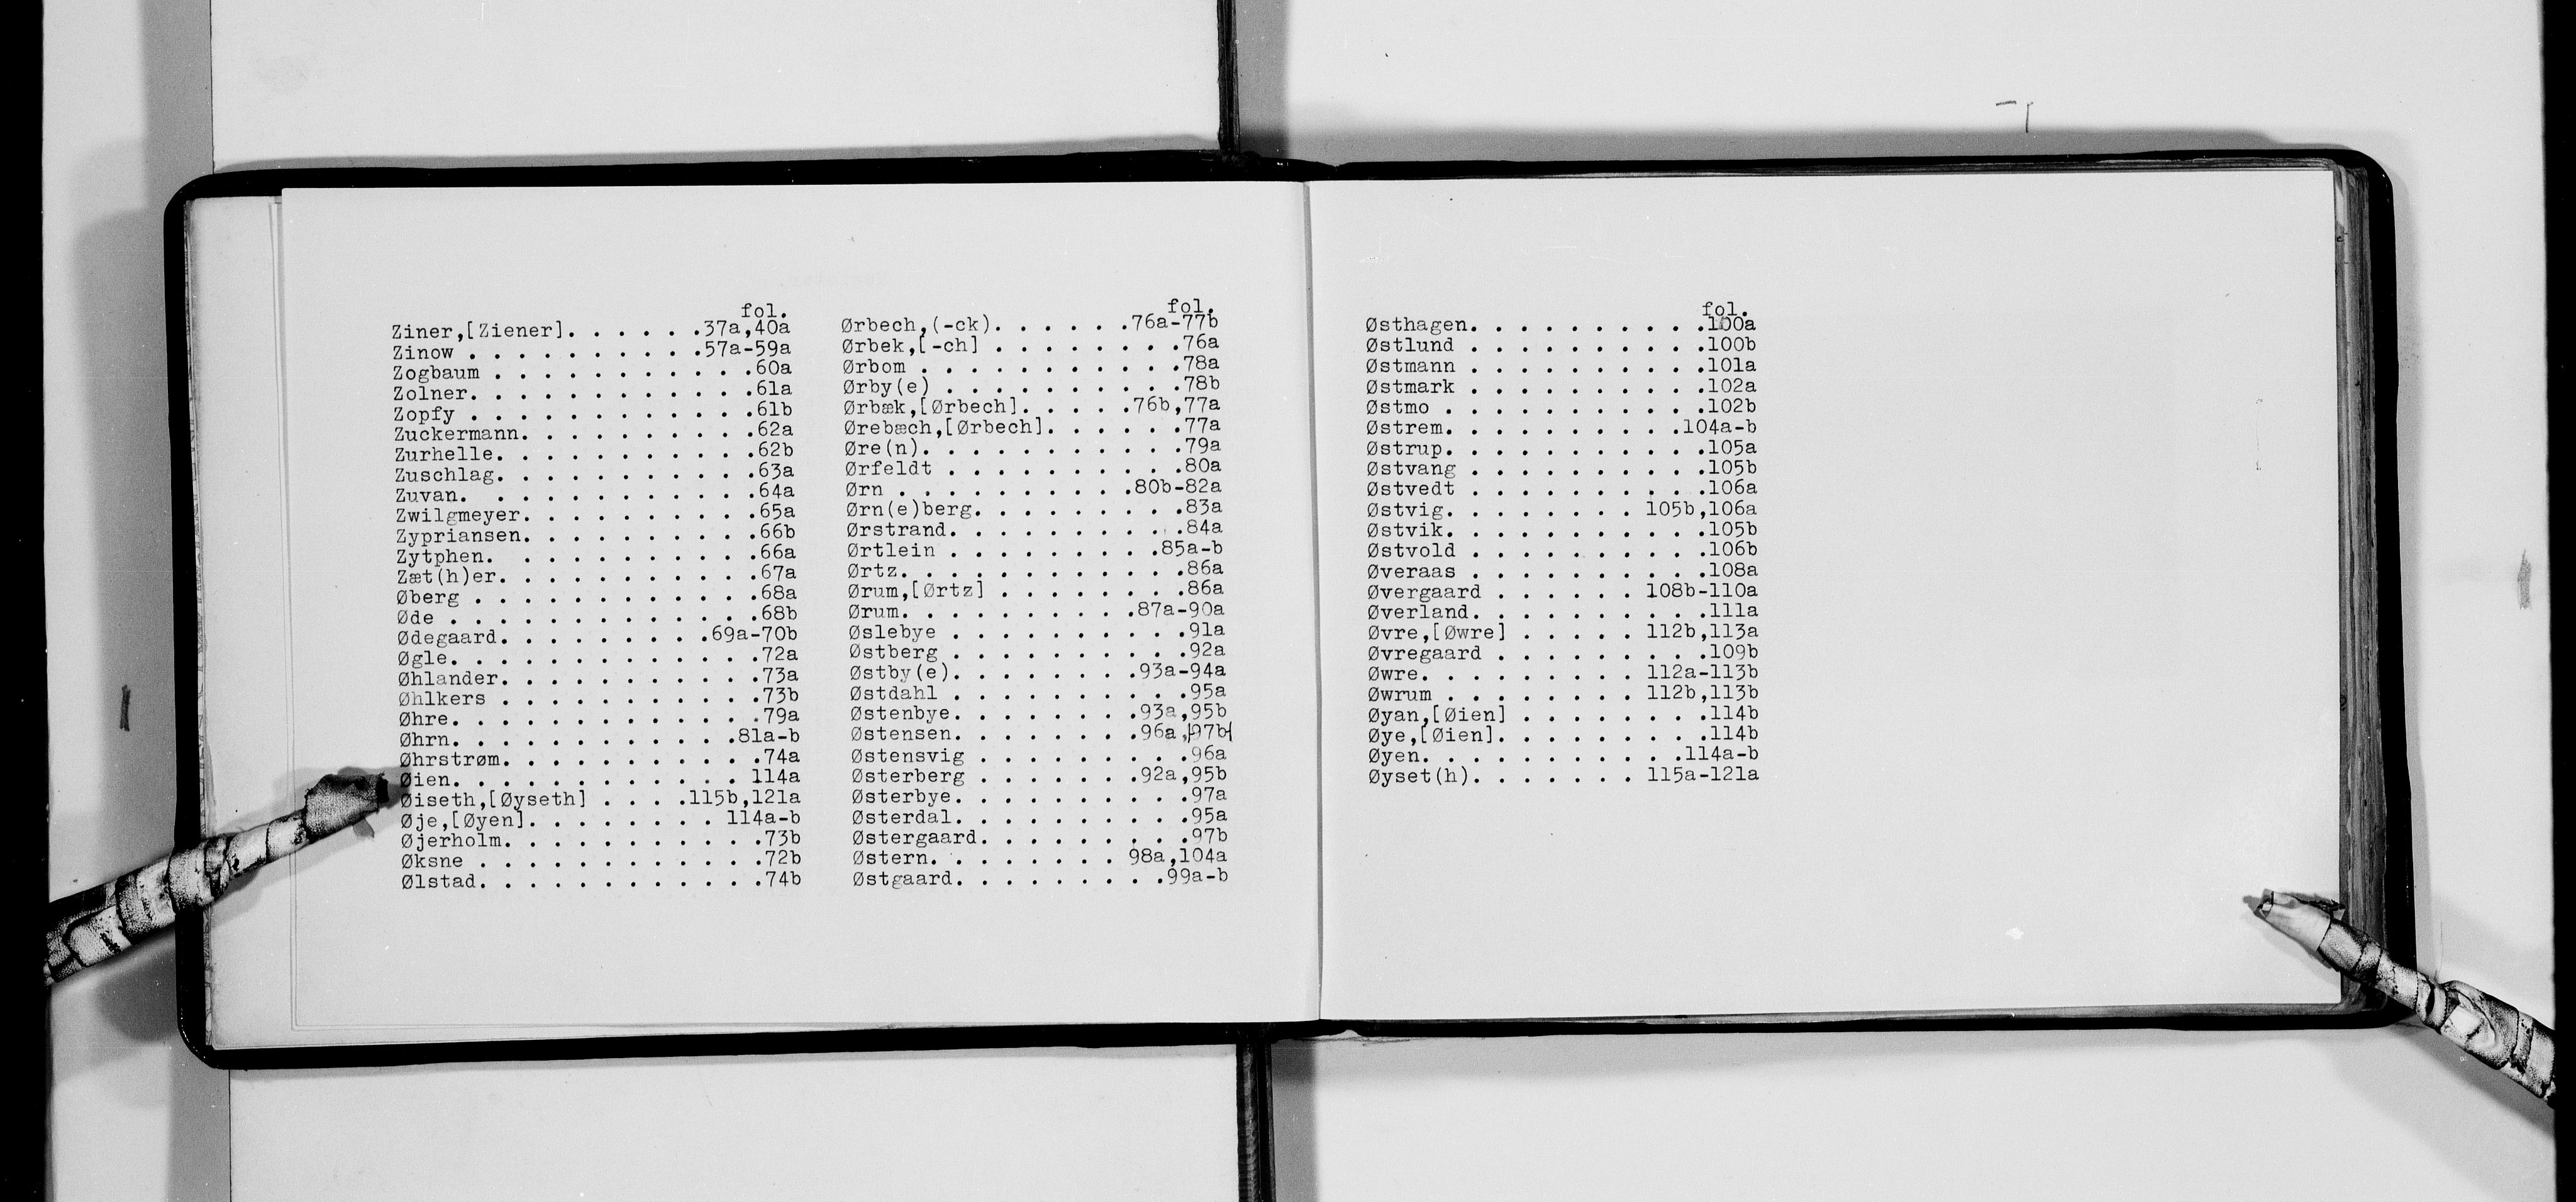 fol.
Ziner,[Ziener]. . . . . .37a,40a
Zinow . . . . . . . . . .57a-59a
Zogbaum . . . . . . . . . . .60a
Zolner. . . . . . . . . . . .61a
Zopfy . . . . . . . . . . . .61b
Zuckermann. . . . . . . . . .62a
Zurhelle. . . . . . . . . . .62b
Zuschlag. . . . . . . . . . .63a
Zuvan. . . . . . . . . . . .64a
Zwilgmeyer. . . . . . . . . .65a
Zypriansen. . . . . . . . . .66b
Zytphen. . . . . . . . . . .66a
Zæt(h)er. . . . . . . . . . .67a
Øberg . . . . . . . . . . . .68a
Øde . . . . . . . . . . . . .68b
Ødegaard. . . . . . . . .69a-70b
Øgle. . . . . . . . . . . . .72a
Øhlander. . . . . . . . . . .73a
Øhlkers . . . . . . . . . . .73b
Øhre. . . . . . . . . . . . .79a
Øhrn. . . . . . . . . . . .81a-b
Øhrstrøm. . . . . . . . . . .74a
Øien. . . . . . . . . . . . 114a
Øiseth,[Øyseth] . . . .115b,121a
Øje,[Øyen]. . . . . . . . 114a-b
Øjerholm. . . . . . . . . . .73b
Øksne . . . . . . . . . . . .72b
Ølstad. . . . . . . . . . . .74b
fol.
Ørbech,(-ck). . . . . .76a-77b
Ørbek,[-ch] . . . . . . . .76a
Ørbom . . . . . . . . . . .78a
Ørby(e) . . . . . . . . . .78b
Ørbæk,[Ørbech]. . . . .76b,77a
Ørebæch,[Ørbech]. . . . . .77a
Øre(n). . . . . . . . . . .79a
Ørfeldt . . . . . . . . . .80a
Ørn . . . . . . . . . .80b-82a
Ørn(e)berg. . . . . . . . .83a
Ørstrand. . . . . . . . . .84a
Ørtlein . . . . . . . . .85a-b
Ørtz. . . . . . . . . . . .86a
Ørum,[Ørtz] . . . . . . . .86a
Ørum. . . . . . . . . .87a-90a
Øslebye . . . . . . . . . .91a
Østberg . . . . . . . . . .92a
Østby(e). . . . . . . .93a-94a
Østdahl . . . . . . . . . .95a
Østenbye. . . . . . . .93a,95b
Østensen. . . . . . . .96a,97b
Østensvig . . . . . . . . .96a
Østerberg . . . . . . .92a,95b
Østerbye. . . . . . . . . .97a
Østerdal. . . . . . . . . .95a
Østergaard. . . . . . . . .97b
Østern. . . . . . . . 98a,104a
Østgaard. . . . . . . . .99a-b
fol.
Østhagen. . . . . . . . . .100a
Østlund . . . . . . . . . .100b
Østmann . . . . . . . . . .101a
Østmark . . . . . . . . . .102a
Østmo . . . . . . . . . . .102b
Østrem. . . . . . . . . .104a-b
Østrup. . . . . . . . . . .105a
Østvang . . . . . . . . . .105b
Østvedt . . . . . . . . . .106a
Østvig. . . . . . . . 105b,106a
Østvik. . . . . . . . . . .105b
Østvold . . . . . . . . . .106b
Øveraas . . . . . . . . . .108a
Øvergaard . . . . . . 108b-110a
Øverland. . . . . . . . . .111a
Øvre,[Øwre] . . . . . 112b,113a
Øvregaard . . . . . . . . .109b
Øwre. . . . . . . . . 112a-113b
Øwrum . . . . . . . . 112b,113b
Øyan,[Øien] . . . . . . . .114b
Øye,[Øien]. . . . . . . . .114b
Øyen. . . . . . . . . . .114a-b
Øyset(h). . . . . . . 115a-121a